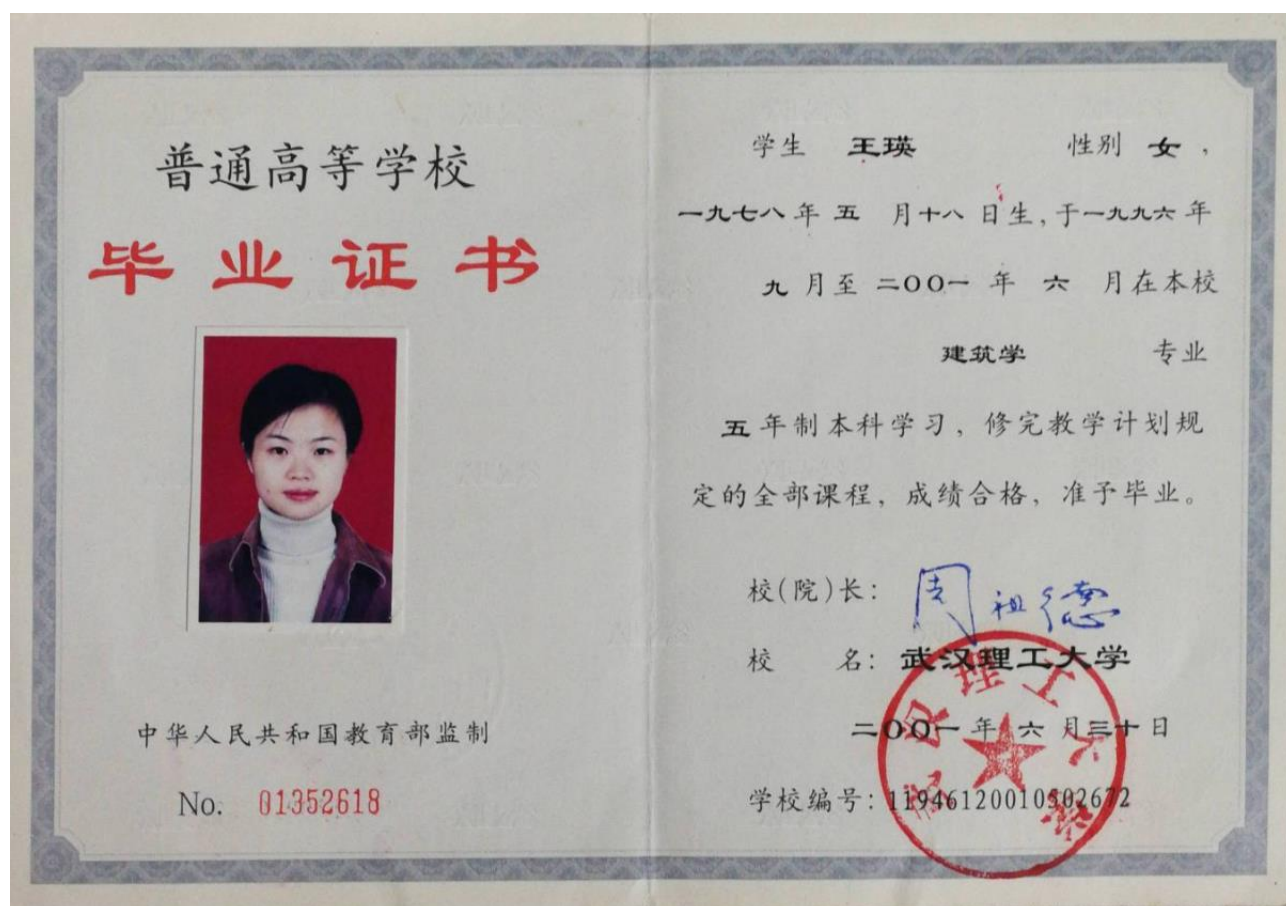 普通高等学校
毕业证书
中华人民共和国教育部监制
No. 01352618
学生 王瑛 性别 女，
一九七八年 五 月十八 日生，于一九九六 年
九 月至 二〇〇一 年 六 月在本校
建筑学 专业
五年制本科学习，修完教学计划规
定的全部课程，成绩合格，准予毕业。
校(院)长：周祖德
校 名：武汉理工大学
二〇〇一 年 六 月三十日
学校编号：11946120010502672
武汉理工大学